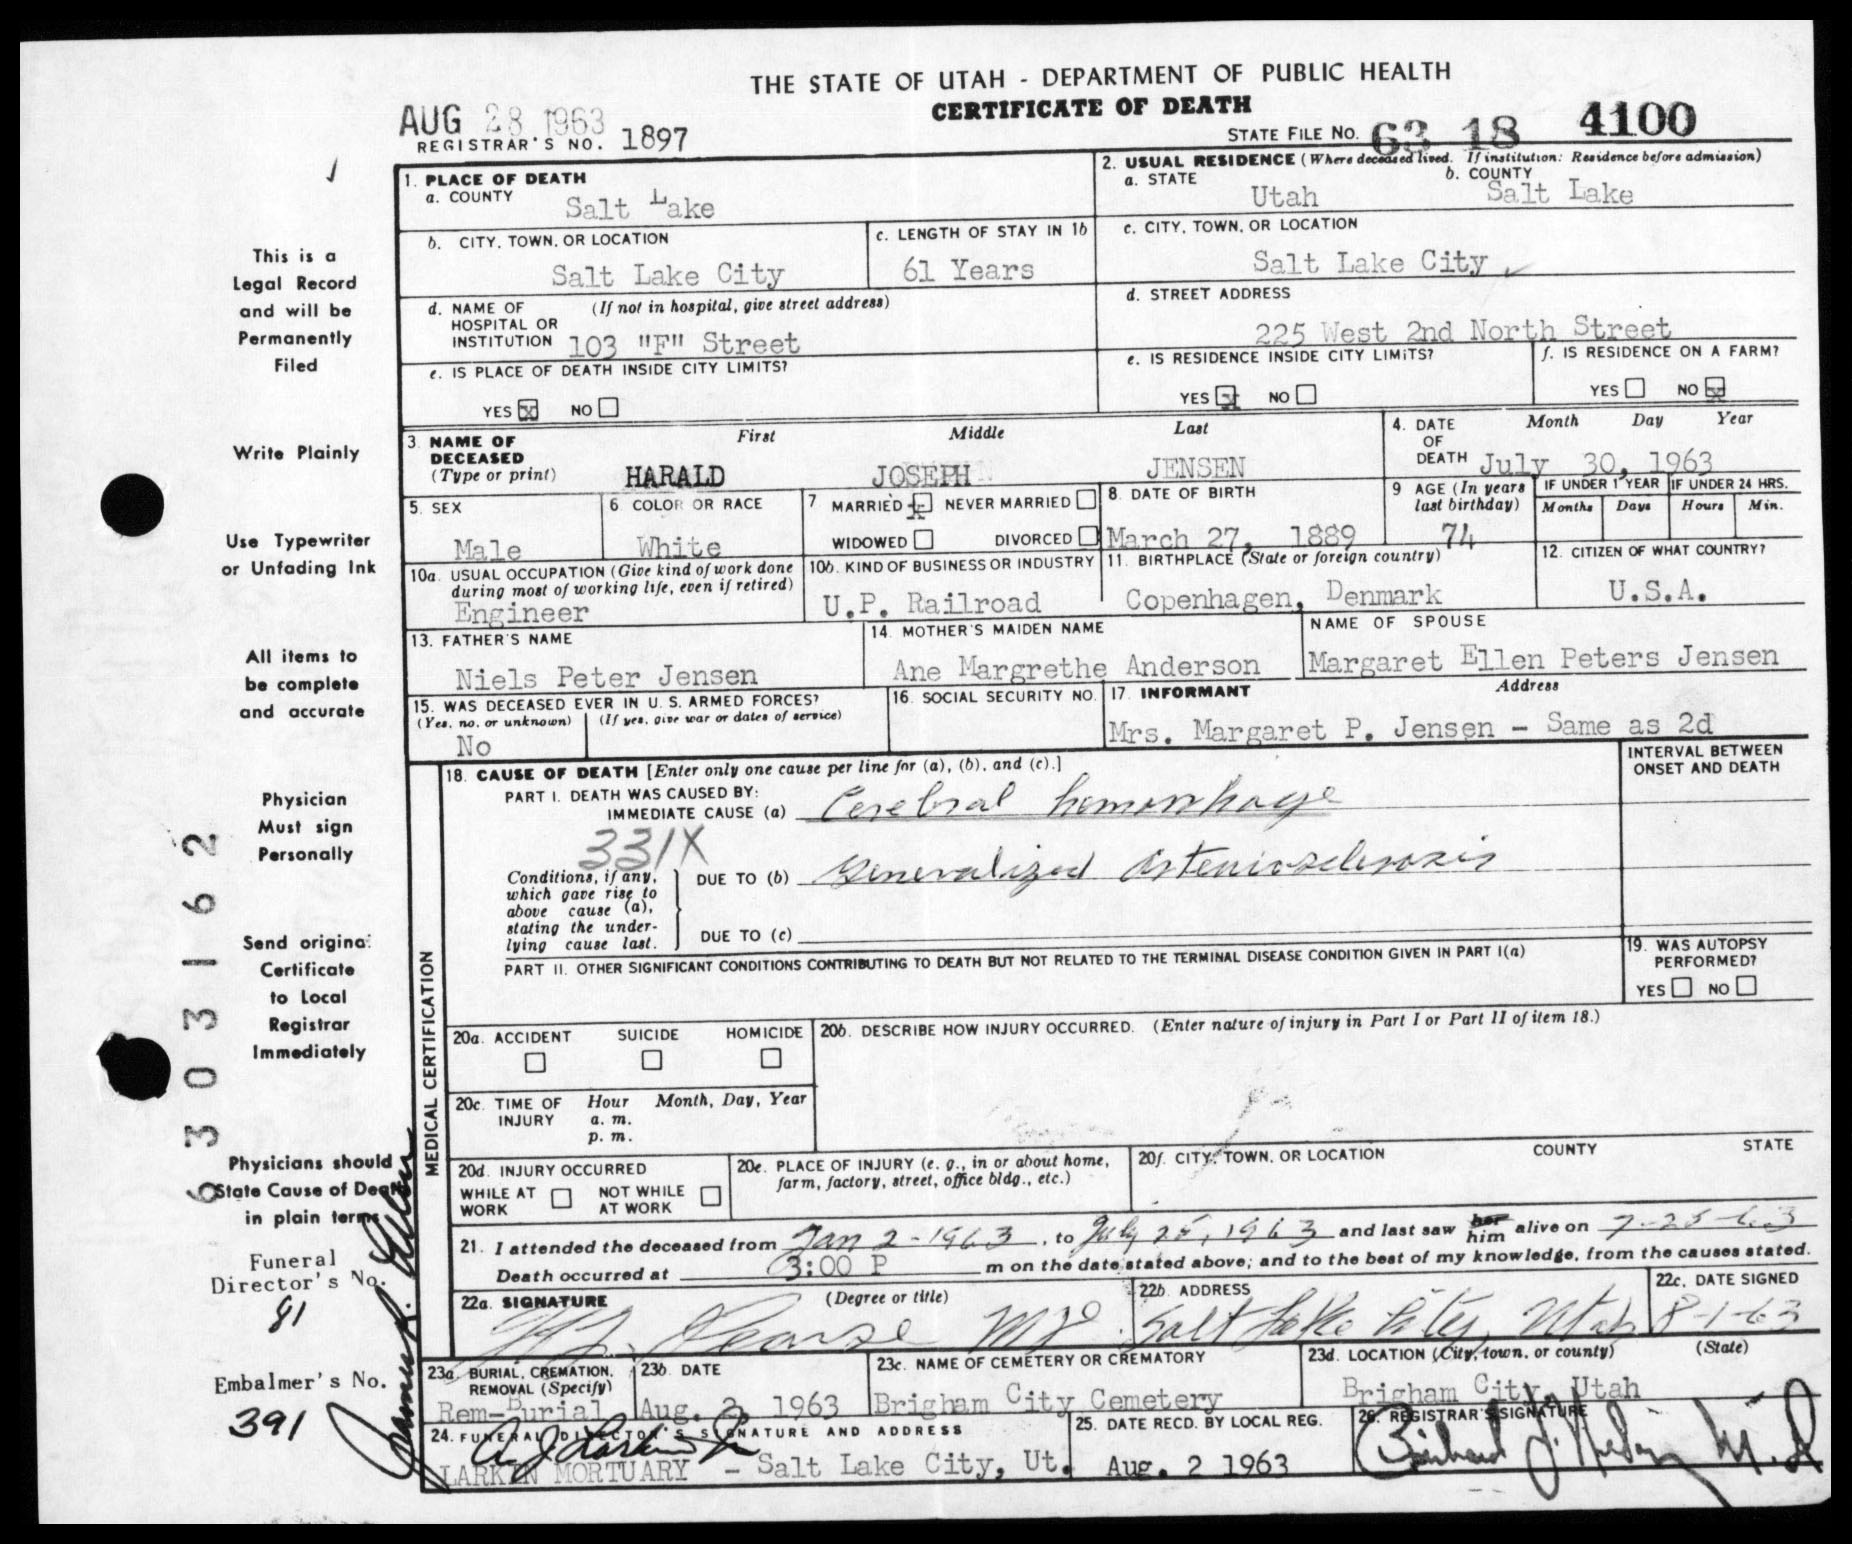 THE STATE OF UTAH - DEPARTMENT OF PUBLIC HEALTH
CERTIFICATE OF DEATH
AUG 28 1963
REGISTRAR'S NO. 1897
STATE FILE NO. 63 18 4100
1. PLACE OF DEATH
a. COUNTY Salt Lake
2. USUAL RESIDENCE (Where deceased lived. If institution: Residence before admission)
a. STATE Utah b. COUNTY Salt Lake
b. CITY, TOWN, OR LOCATION Salt Lake City
c. LENGTH OF STAY IN 1b 61 Years
c. CITY, TOWN, OR LOCATION Salt Lake City
d. NAME OF HOSPITAL OR INSTITUTION (If not in hospital, give street address) 103 "F" Street
d. STREET ADDRESS 225 West 2nd North Street
e. IS PLACE OF DEATH INSIDE CITY LIMITS?
YES x NO
e. IS RESIDENCE INSIDE CITY LIMITS?
YES x NO
f. IS RESIDENCE ON A FARM?
YES NO x
3. NAME OF DECEASED (Type or print)
First Middle Last
HARALD JOSEPH JENSEN
4. DATE OF DEATH Month Day Year
July 30, 1963
5. SEX Male
6. COLOR OR RACE White
7 MARRIED x NEVER MARRIED
WIDOWED DIVORCED
8. DATE OF BIRTH March 27, 1889
9 AGE (In years last birthday) 74
IF UNDER 1 YEAR Months Days
IF UNDER 24 HRS. Hours Min.
10a. USUAL OCCUPATION (Give kind of work done during most of working life, even if retired) Engineer
10b. KIND OF BUSINESS OR INDUSTRY U.P. Railroad
11. BIRTHPLACE (State or foreign country) Copenhagen, Denmark
12. CITIZEN OF WHAT COUNTRY? U.S.A.
13. FATHER'S NAME Niels Peter Jensen
14. MOTHER'S MAIDEN NAME Ane Margrethe Anderson
NAME OF SPOUSE Margaret Ellen Peters Jensen
15. WAS DECEASED EVER IN U.S. ARMED FORCES?
(Yes, no, or unknown) (If yes, give war or dates of service)
No
16. SOCIAL SECURITY NO.
17. INFORMANT Address
Mrs. Margaret P. Jensen - Same as 2d
MEDICAL CERTIFICATION
18. CAUSE OF DEATH [Enter only one cause per line for (a), (b), and (c).]
INTERVAL BETWEEN ONSET AND DEATH
PART I. DEATH WAS CAUSED BY:
IMMEDIATE CAUSE (a) Cerebral hemorrhage
331X
Conditions, if any, which gave rise to above cause (a), stating the underlying cause last.
DUE TO (b) Generalized Arteriosclerosis
DUE TO (c)
PART II. OTHER SIGNIFICANT CONDITIONS CONTRIBUTING TO DEATH BUT NOT RELATED TO THE TERMINAL DISEASE CONDITION GIVEN IN PART I(a)
19. WAS AUTOPSY PERFORMED?
YES NO
20a. ACCIDENT SUICIDE HOMICIDE
20b. DESCRIBE HOW INJURY OCCURRED. (Enter nature of injury in Part I or Part II of item 18.)
20c. TIME OF INJURY Hour a.m. p.m. Month, Day, Year
20d. INJURY OCCURRED
WHILE AT WORK NOT WHILE AT WORK
20e. PLACE OF INJURY (e. g., in or about home, farm, factory, street, office bldg., etc.)
20f. CITY, TOWN, OR LOCATION COUNTY STATE
21. I attended the deceased from Jan 2-1963, to July 25, 1963 and last saw her him alive on 7-25-63
Death occurred at 3:00 P m on the date stated above; and to the best of my knowledge, from the causes stated.
22a. SIGNATURE (Degree or title)
Pearse MD
22b. ADDRESS Salt Lake City, Utah
22c. DATE SIGNED 8-1-63
23a. BURIAL, CREMATION, REMOVAL (Specify) Rem-Burial
23b. DATE Aug. 2, 1963
23c. NAME OF CEMETERY OR CREMATORY Brigham City Cemetery
23d. LOCATION (City, town, or county) (State)
Brigham City, Utah
24. FUNERAL DIRECTOR'S SIGNATURE AND ADDRESS
LARKIN MORTUARY - Salt Lake City, Ut.
25. DATE RECD. BY LOCAL REG. Aug. 2 1963
26. REGISTRAR'S SIGNATURE
This is a
Legal Record
and will be
Permanently
Filed
Write Plainly
Use Typewriter
or Unfading Ink
All items to
be complete
and accurate
Physician
Must sign
Personally
Send original
Certificate
to Local
Registrar
Immediately
Physicians should
State Cause of Death
in plain terms
Funeral
Director's No.
81
Embalmer's No.
391
6303162